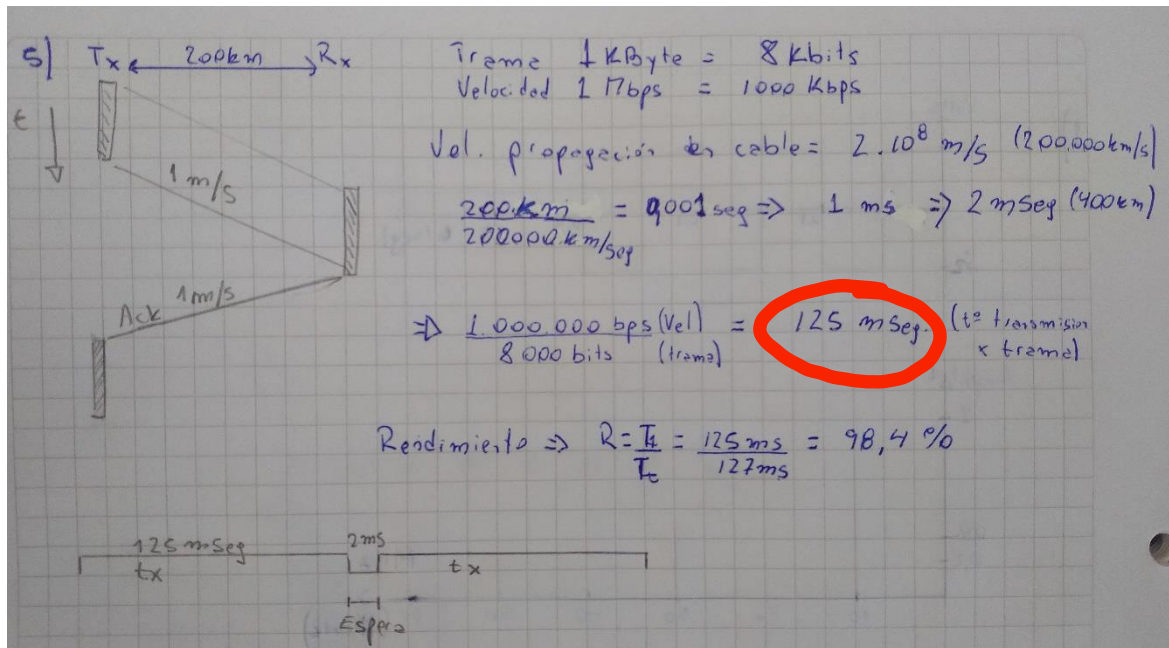 5) Tx 200km Rx
Trama 1 KByte = 8 Kbits
Velocidad 1 Mbps = 1000 Kbps
t
Vel. propagación en cable = 2.10⁸ m/s (200.000km/s)
1 m/s
200.km / 200000.km/seg = 0,001 seg => 1 ms => 2 mSeg (400km)
Ack 1m/s
=> 1.000.000 bps (Vel) / 8000 bits (trama) = 125 mSeg. (tº transmision x trama)
Rendimiento => R = T1/Tt = 125 ms / 127ms = 98,4 %
125 mSeg 2ms
tx tx
Espera